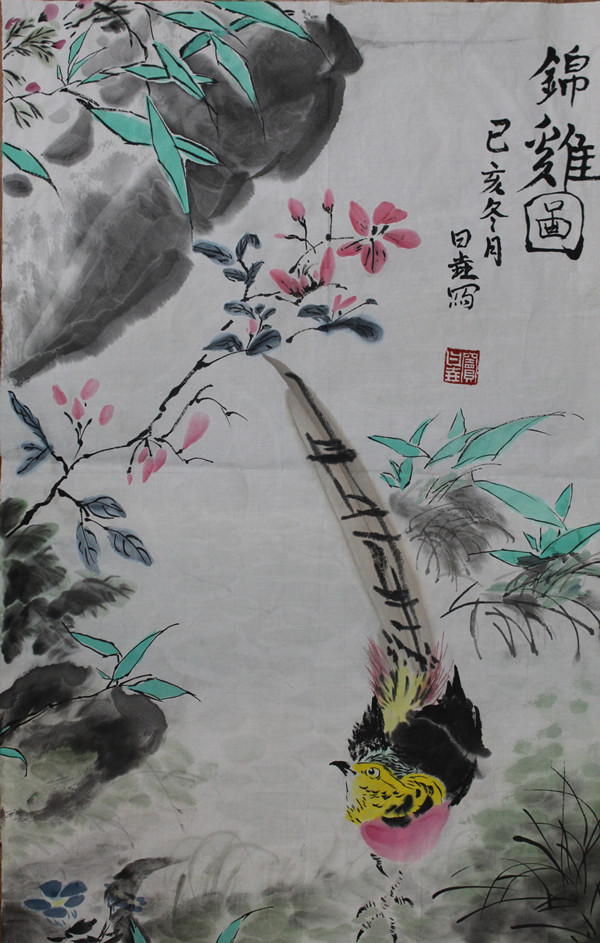 錦雞圖
己亥冬月
日垚寫